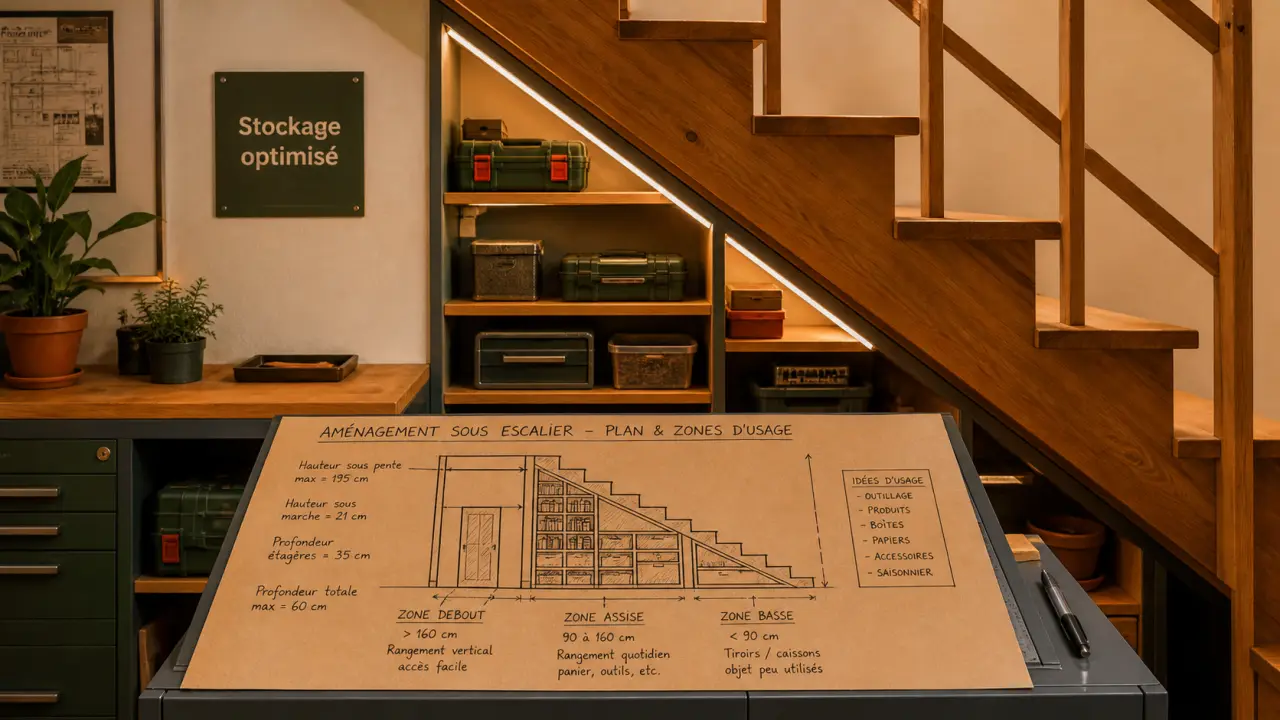 Stockage
optimisé
AMÉNAGEMENT SOUS ESCALIER – PLAN & ZONES D'USAGE
Hauteur sous pente
max = 195 cm
Hauteur sous
marche = 21 cm
Profondeur
étagères = 35 cm
Profondeur totale
max = 60 cm
ZONE DEBOUT
> 160 cm
Rangement vertical
accès facile
ZONE ASSISE
90 à 160 cm
Rangement quotidien
panier, outils, etc.
ZONE BASSE
< 90 cm
Tiroirs / caissons
objet peu utilisés
IDÉES D'USAGE
- OUTILLAGE
- PRODUITS
- BOÎTES
- PAPIERS
- ACCESSOIRES
- SAISONNIER